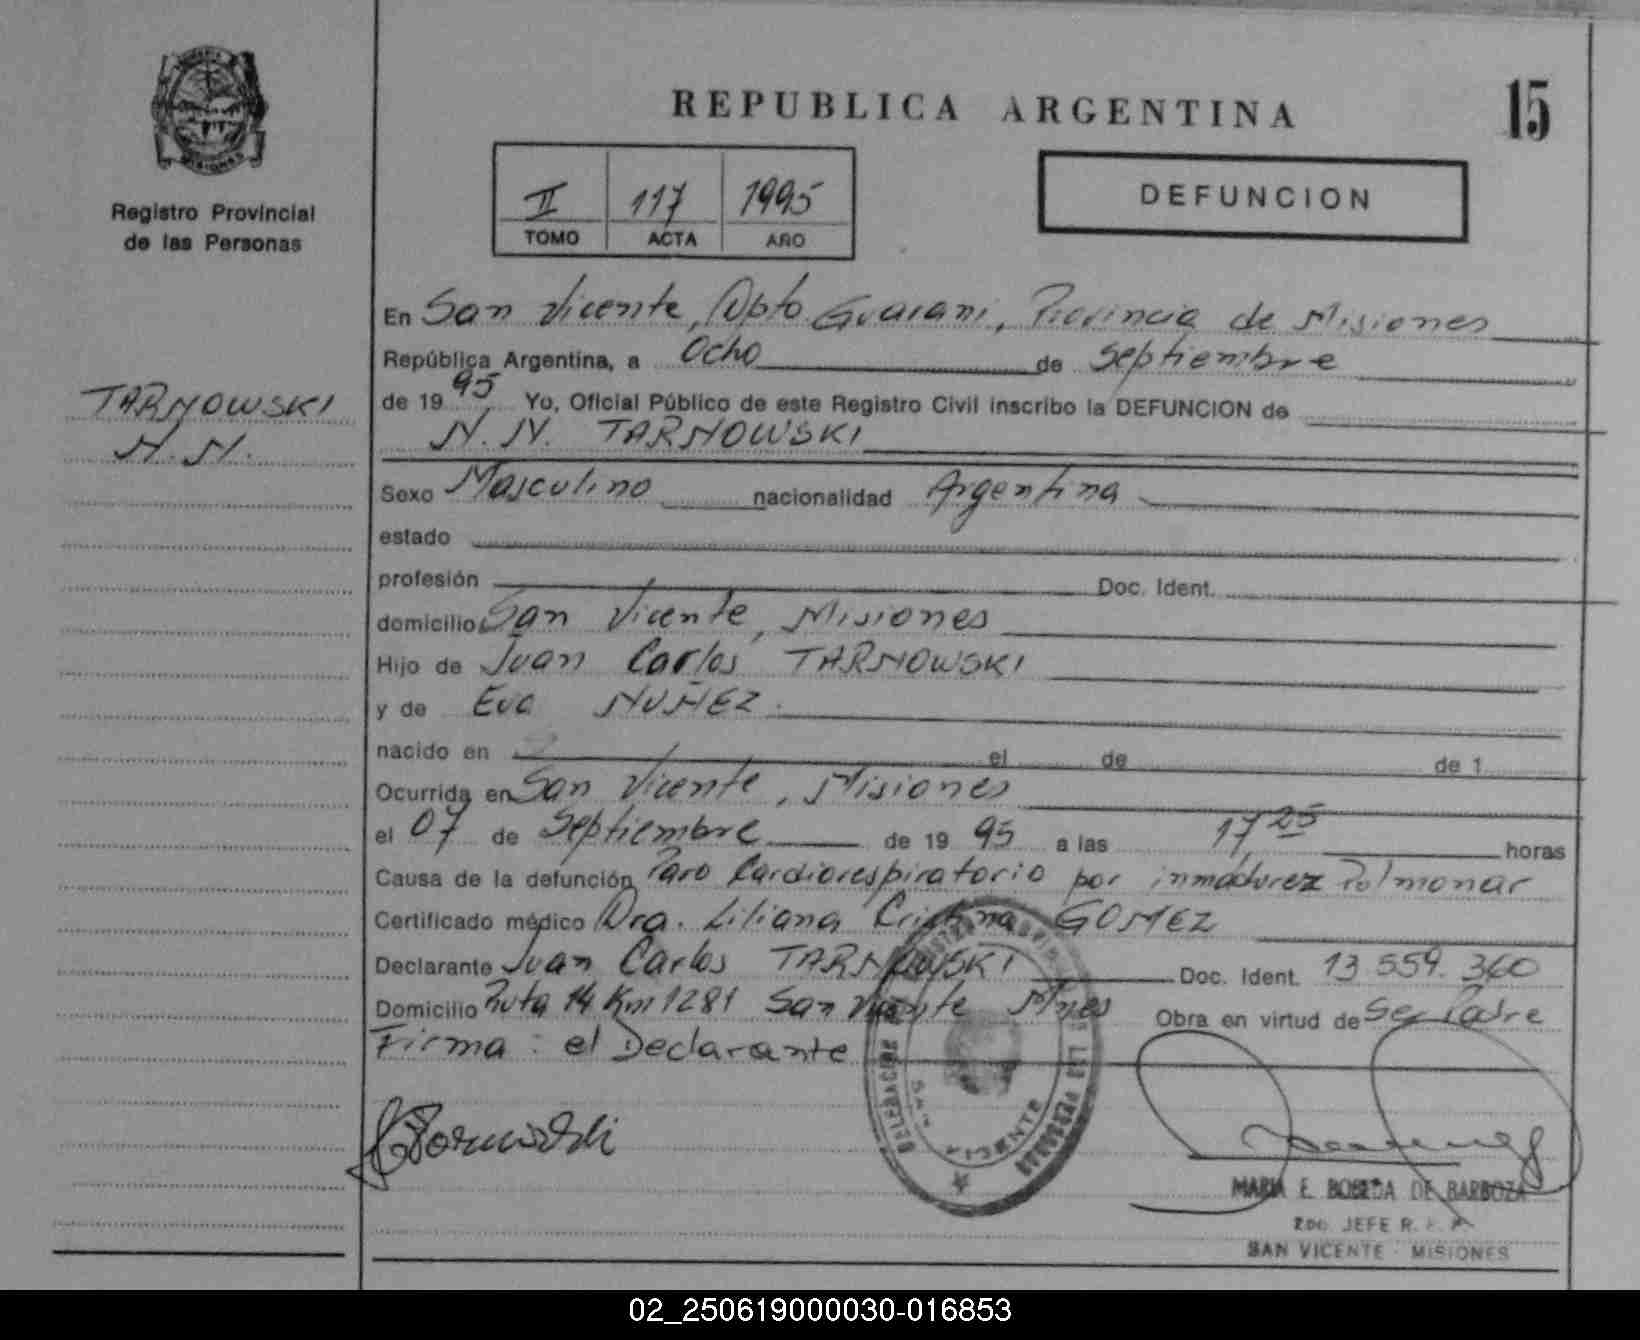 MISIONES
Registro Provincial
de las Personas
TARNOWSKI
N.N.
REPUBLICA ARGENTINA
15
II 117 1995
TOMO ACTA AÑO
DEFUNCION
En San Vicente, Dpto Guarani, Provincia de Misiones
República Argentina, a Ocho de Septiembre
de 19 95 Yo, Oficial Público de este Registro Civil inscribo la DEFUNCION de
N. N. TARNOWSKI
Sexo Masculino nacionalidad Argentina
estado
profesión Doc. Ident.
domicilio San Vicente, Misiones
Hijo de Juan Carlos TARNOWSKI
y de Eva NUÑEZ.
nacido en el de de 1
Ocurrida en San Vicente, Misiones
el 07 de Septiembre de 19 95 a las 17 25 horas
Causa de la defunción Paro Cardiorespiratorio por inmadurez Pulmonar
Certificado médico Dra. Liliana Cristina GOMEZ
Declarante Juan Carlos TARNOWSKI Doc. Ident. 13.559.360
Domicilio Ruta 14 Km 1281 San Vicente Mnes Obra en virtud de Ser Padre
Firma: el Declarante
DELEGACION SAN VICENTE
MARIA E. BOBEDA DE BARBOZA
2do. JEFE R. P. P.
SAN VICENTE - MISIONES
02_250619000030-016853